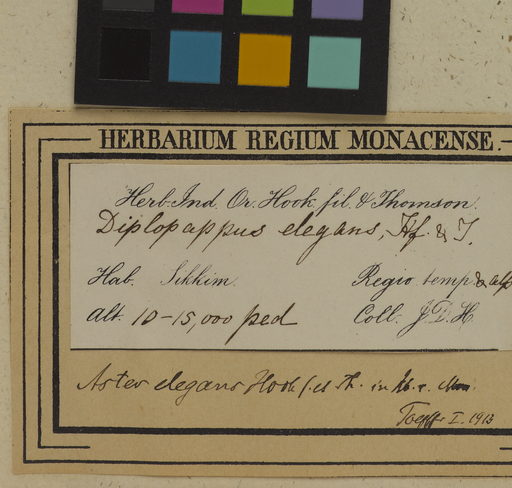 HERBARIUM REGIUM MONACENSE.
Herb. Ind. Or. Hook. fil. & Thomson.
Diplopappus elegans, Hf. & T.
Hab. Sikkim. Regio temp. & alp
Alt. 10-15,000 ped Coll. J. D. H.
Aster elegans Hook f. et Th. in
I. 1913